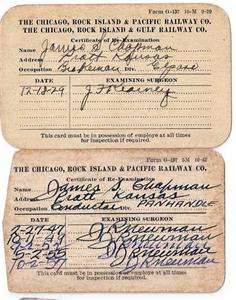 Form G-137 10-M 9-29
THE CHICAGO, ROCK ISLAND & PACIFIC RAILWAY CO.
THE CHICAGO, ROCK ISLAND & GULF RAILWAY CO.
Certificate of Re-Examination
Name James S Chapman
Address Pratt Kansas
Occupation Brakeman Div. El paso
DATE EXAMINING SURGEON
This card must be in possession of employe at all times
for inspection if required.
Form G-137
THE CHICAGO, ROCK ISLAND & PACIFIC RAILWAY CO.
Certificate of Re-Examination
Name James S Chapman
Address Pratt Kansas
Occupation Conductor PANHANDLE
DATE EXAMINING SURGEON
2-27-47 J R Newman
J R Newman
J R Newman
J R Newman
J R Newman
This card must be in possession of employe at all times
for inspection if required.